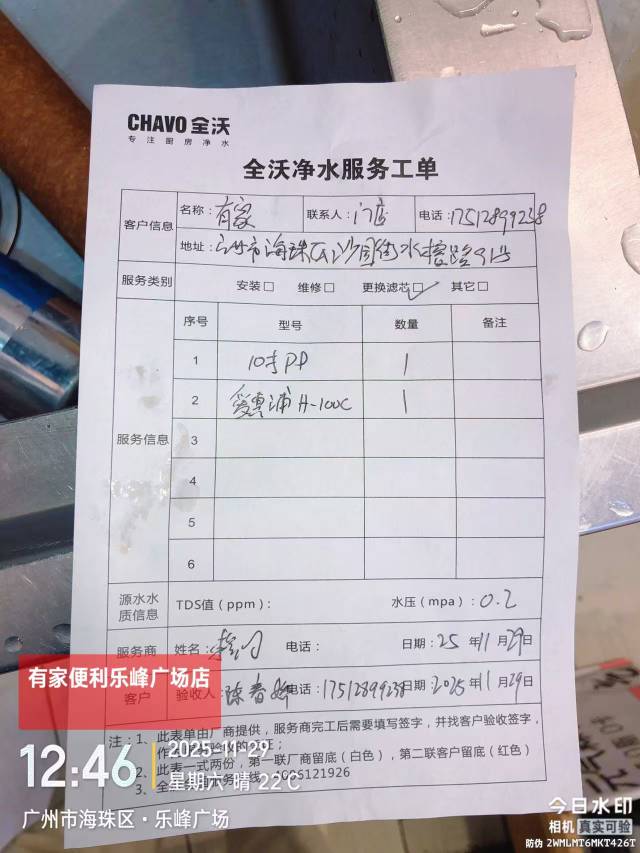 CHAVO 全沃
专注厨房净水
全沃净水服务工单
客户信息
名称：有家 联系人：门店 电话：17512899238
地址：广州市海珠区沙园街水榕路91号
服务类别 安装□ 维修□ 更换滤芯□✓ 其它□
服务信息
序号 型号 数量 备注
1 10寸PP 1
2 爱惠浦 H-100C 1
3
4
5
6
源水水质信息 TDS值（ppm）： 水压（mpa）：0.2
服务商 姓名： 电话： 日期：25年11月29日
客户 验收人：陈春 电话：17512899238 日期：2025年11月29日
注：1、此表单由厂商提供，服务商完工后需要填写签字，并找客户验收签字，
作 证；
2、此表一式两份，第一联厂商留底（白色），第二联客户留底（红色）
3、全 务 线： 025121926
有家便利乐峰广场店
12:46
2025-11-29
星期六 晴 22℃
广州市海珠区·乐峰广场
今日水印
相机 真实可验
防伪 2WMLMT6MKT426T